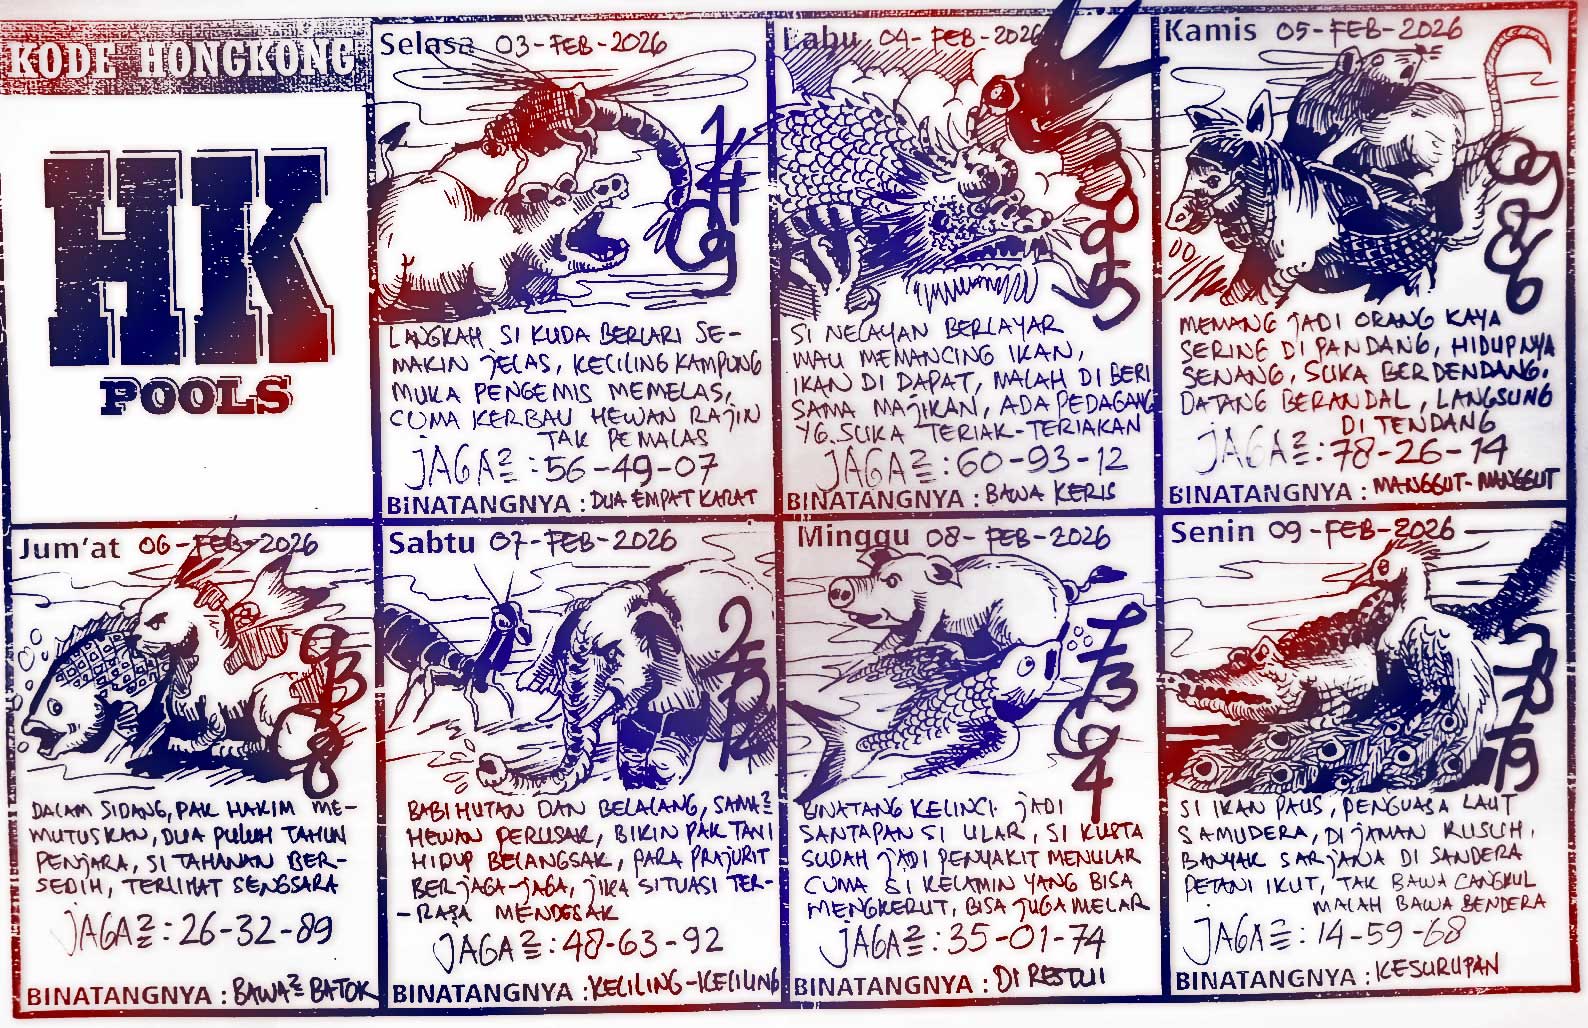 KODE HONGKONG
HK
POOLS
Selasa 03-FEB-2026
LANGKAH SI KUDA BERLARI SE-
MAKIN JELAS, KECILING KAMPUNG
MUKA PENGEMIS MEMELAS,
CUMA KERBAU HEWAN RAJIN
TAK PEMALAS
JAGA2 : 56-49-07
BINATANGNYA : DUA EMPAT KARAT
Labu 04-FEB-2026
SI NELAYAN BERLAYAR
MAU MEMANCING IKAN,
IKAN DI DAPAT, MALAH DI BERI
SAMA MAJIKAN, ADA PEDAGANG
YG. SUKA TERIAK-TERIAKAN
JAGA2 : 60-93-12
BINATANGNYA : BAWA KERIS
Kamis 05-FEB-2026
MEMANG JADI ORANG KAYA
SERING DI PANDANG, HIDUPNYA
SENANG, SUKA BERDENDANG.
DATANG BERANDAL, LANGSUNG
DI TENDANG
JAGA2 : 78-26-14
BINATANGNYA : MANGGUT-MANGGUT
Jum'at 06-FEB-2026
DALAM SIDANG, PAK HAKIM ME-
MUTUSKAN, DUA PULUH TAHUN
PENJARA, SI TAHANAN BER-
SEDIH, TERLIHAT SENGSARA
JAGA2 : 26-32-89
BINATANGNYA : BAWA2 BATOK
Sabtu 07-FEB-2026
BABI HUTAN DAN BELALANG, SAMA2
HEWAN PERUSAK, BIKIN PAK TANI
HIDUP BELANGSAK, PARA PRAJURIT
BERJAGA-JAGA, JIKA SITUASI TER-
-RASA MENDESAK
JAGA2 : 48-63-92
BINATANGNYA : KELILING-KELILING
Minggu 08-FEB-2026
BINATANG KELINCI JADI
SANTAPAN SI ULAR, SI KUSTA
SUDAH JADI PENYAKIT MENULAR
CUMA SI KELAMIN YANG BISA
MENGKERUT, BISA JUGA MELAR
JAGA2 : 35-01-74
BINATANGNYA : DI RESTUI
Senin 09-FEB-2026
SI IKAN PAUS, PENGUASA LAUT
SAMUDERA, DI JAMAN RUSUH,
BANYAK SARJANA DI SANDERA
PETANI IKUT, TAK BAWA CANGKUL
MALAH BAWA BENDERA
JAGA2 : 14-59-68
BINATANGNYA : KESURUPAN